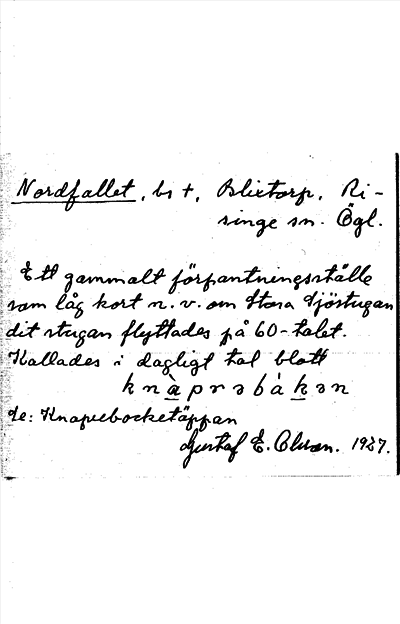 Nordfallet, bs †, Blixtorp, Ri-
singe sn. Ögl.
Ett gammalt förpantningsställe
som låg kort n.v. om Stora Sjöstugan
dit stugan flyttades på 60-talet.
Kallades i dagligt tal blott
knàprəbàkən
Se: Knaprebacketäppan
Gustaf E. Olsson. 1927.